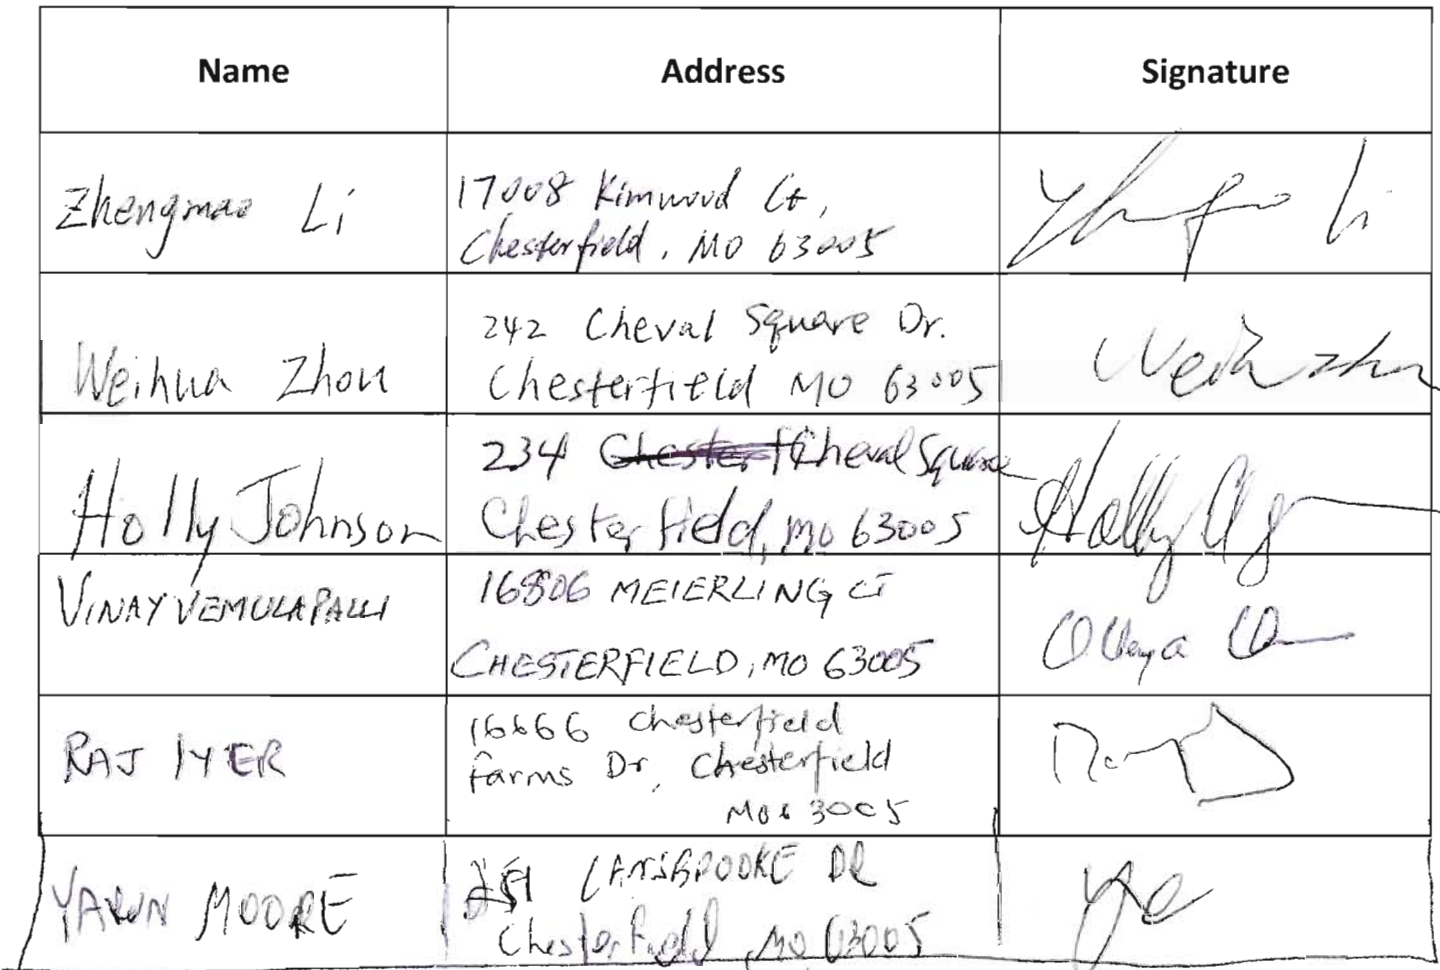 Name Address Signature
Zhengmao Li
17008 Kimwood Ct,
Chesterfield, MO 63005
Weihua Zhou
242 Cheval Square Dr.
Chesterfield MO 63005
Holly Johnson
234 Cheval Square
Chesterfield, MO 63005
Holly
VINAY VEMULAPALLI
16806 MEIERLING CT
CHESTERFIELD, MO 63005
RAJ IYER
16666 Chesterfield
Farms Dr, Chesterfield
MO 63005
MOORE
DR
Chesterfield, MO 63005